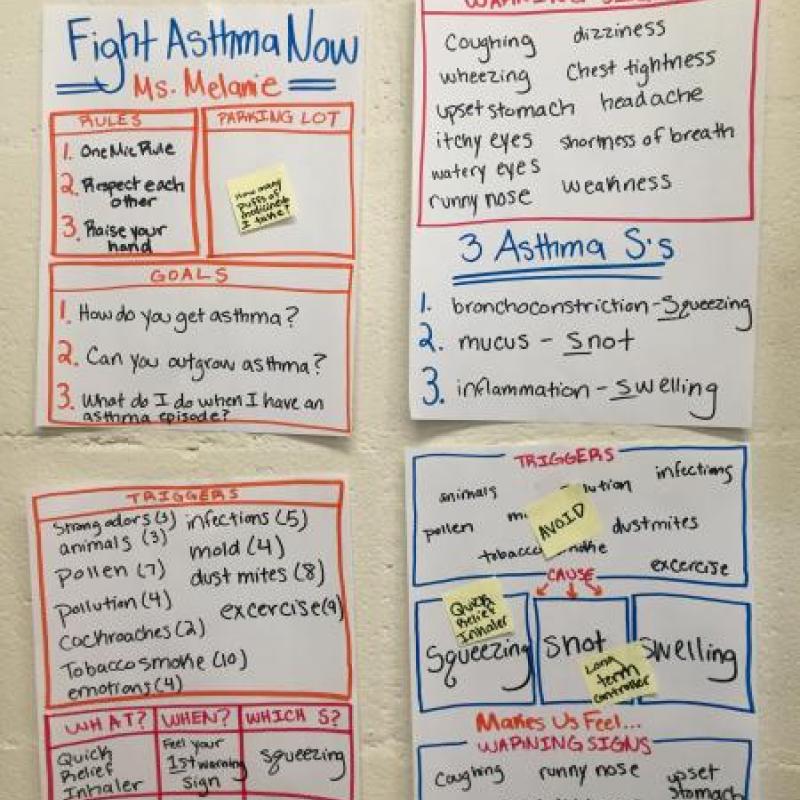 Fight Asthma Now
Ms. Melanie
RULES
1. One Mic Rule
2. Respect each
other
3. Raise your
hand
PARKING LOT
How many
puffs of
medicine do
I take?
GOALS
1. How do you get asthma?
2. Can you outgrow asthma?
3. What do I do when I have an
asthma episode?
WARNING SIGNS
Coughing dizziness
wheezing Chest tightness
upset stomach headache
itchy eyes shortness of breath
watery eyes
runny nose weakness
3 Asthma S's
1. bronchoconstriction - Squeezing
2. mucus - Snot
3. inflammation - Swelling
TRIGGERS
Strong odors (3) infections (5)
animals (3) mold (4)
Pollen (7) dust mites (8)
Pollution (4) excercise (9)
Cockroaches (2)
Tobacco smoke (10)
emotions (4)
WHAT? WHEN? WHICH S?
Quick
Relief
Inhaler
Feel your
1st warning
Sign
Squeezing
TRIGGERS
animals lution infections
pollen AVOID dustmites
tobacco excercise
CAUSE
Quick
Relief
Inhaler
Squeezing Snot Swelling
Long
term
controller
Makes Us Feel...
WARNING SIGNS
Coughing runny nose upset
stomach